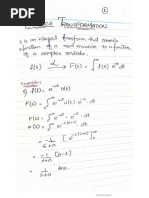 ①
LAPLACE TRANSFORMATION
It is an integral transform that converts
a function of a real variable to a function
of a complex variable.
f(t) → F(s) = ∫₀^∞ f(t) e^-st dt
Examples
1) f(t) = e^-at u(t)
F(s) = ∫₀^∞ e^-at u(t) e^-st dt
F(s) = ∫₀^∞ e^-(s+a)t dt
= -1/(s+a) [0-1]
= 1/(s+a) Ans.